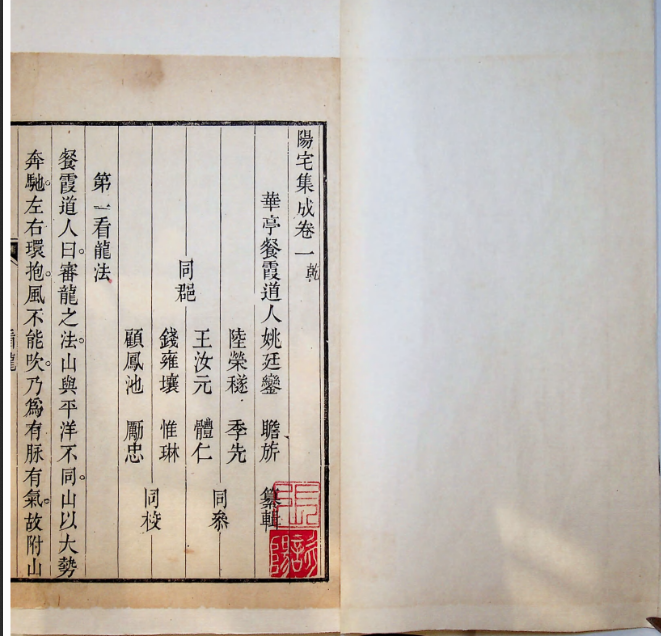 陽宅集成卷一乾
華亭餐霞道人姚廷鑾 瞻旂 纂輯
陸榮穟 季先
同邑 王汝元 體仁 同叅
錢雍壤 惟琳
顧鳳池 勵忠 同校
第一看龍法
餐霞道人曰。審龍之法。山與平洋不同。山以大勢
奔馳。左右環抱。風不能吹。乃為有脉有氣。故附山
看龍